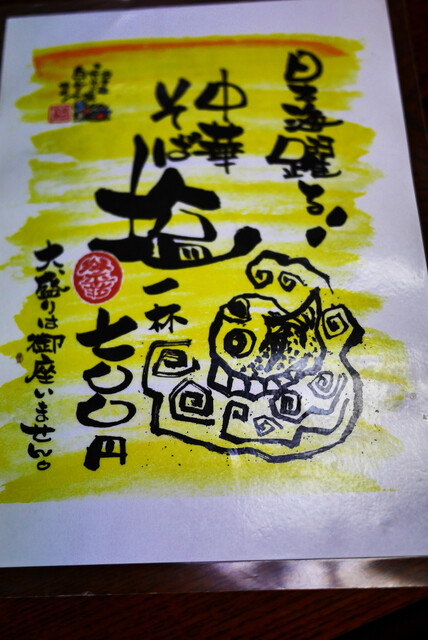 日本海躍る!
中華
そば
塩
一杯
七〇〇円
大盛りは御座いません。